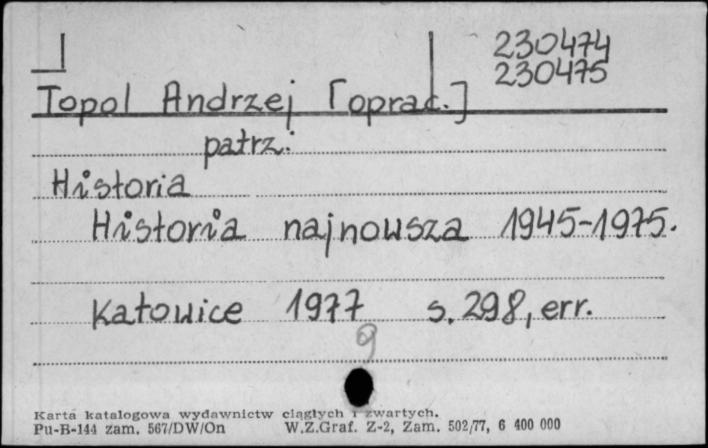 230474
230475
Topol Andrzej [oprac.]
patrz:
Historia
Historia najnowsza 1945-1975.
Katowice 1977 s. 298, err.
9
Karta katalogowa wydawnictw ciągłych i zwartych.
Pu-B-144 zam. 567/DW/On W.Z.Graf. Z-2, Zam. 502/77, 6 400 000